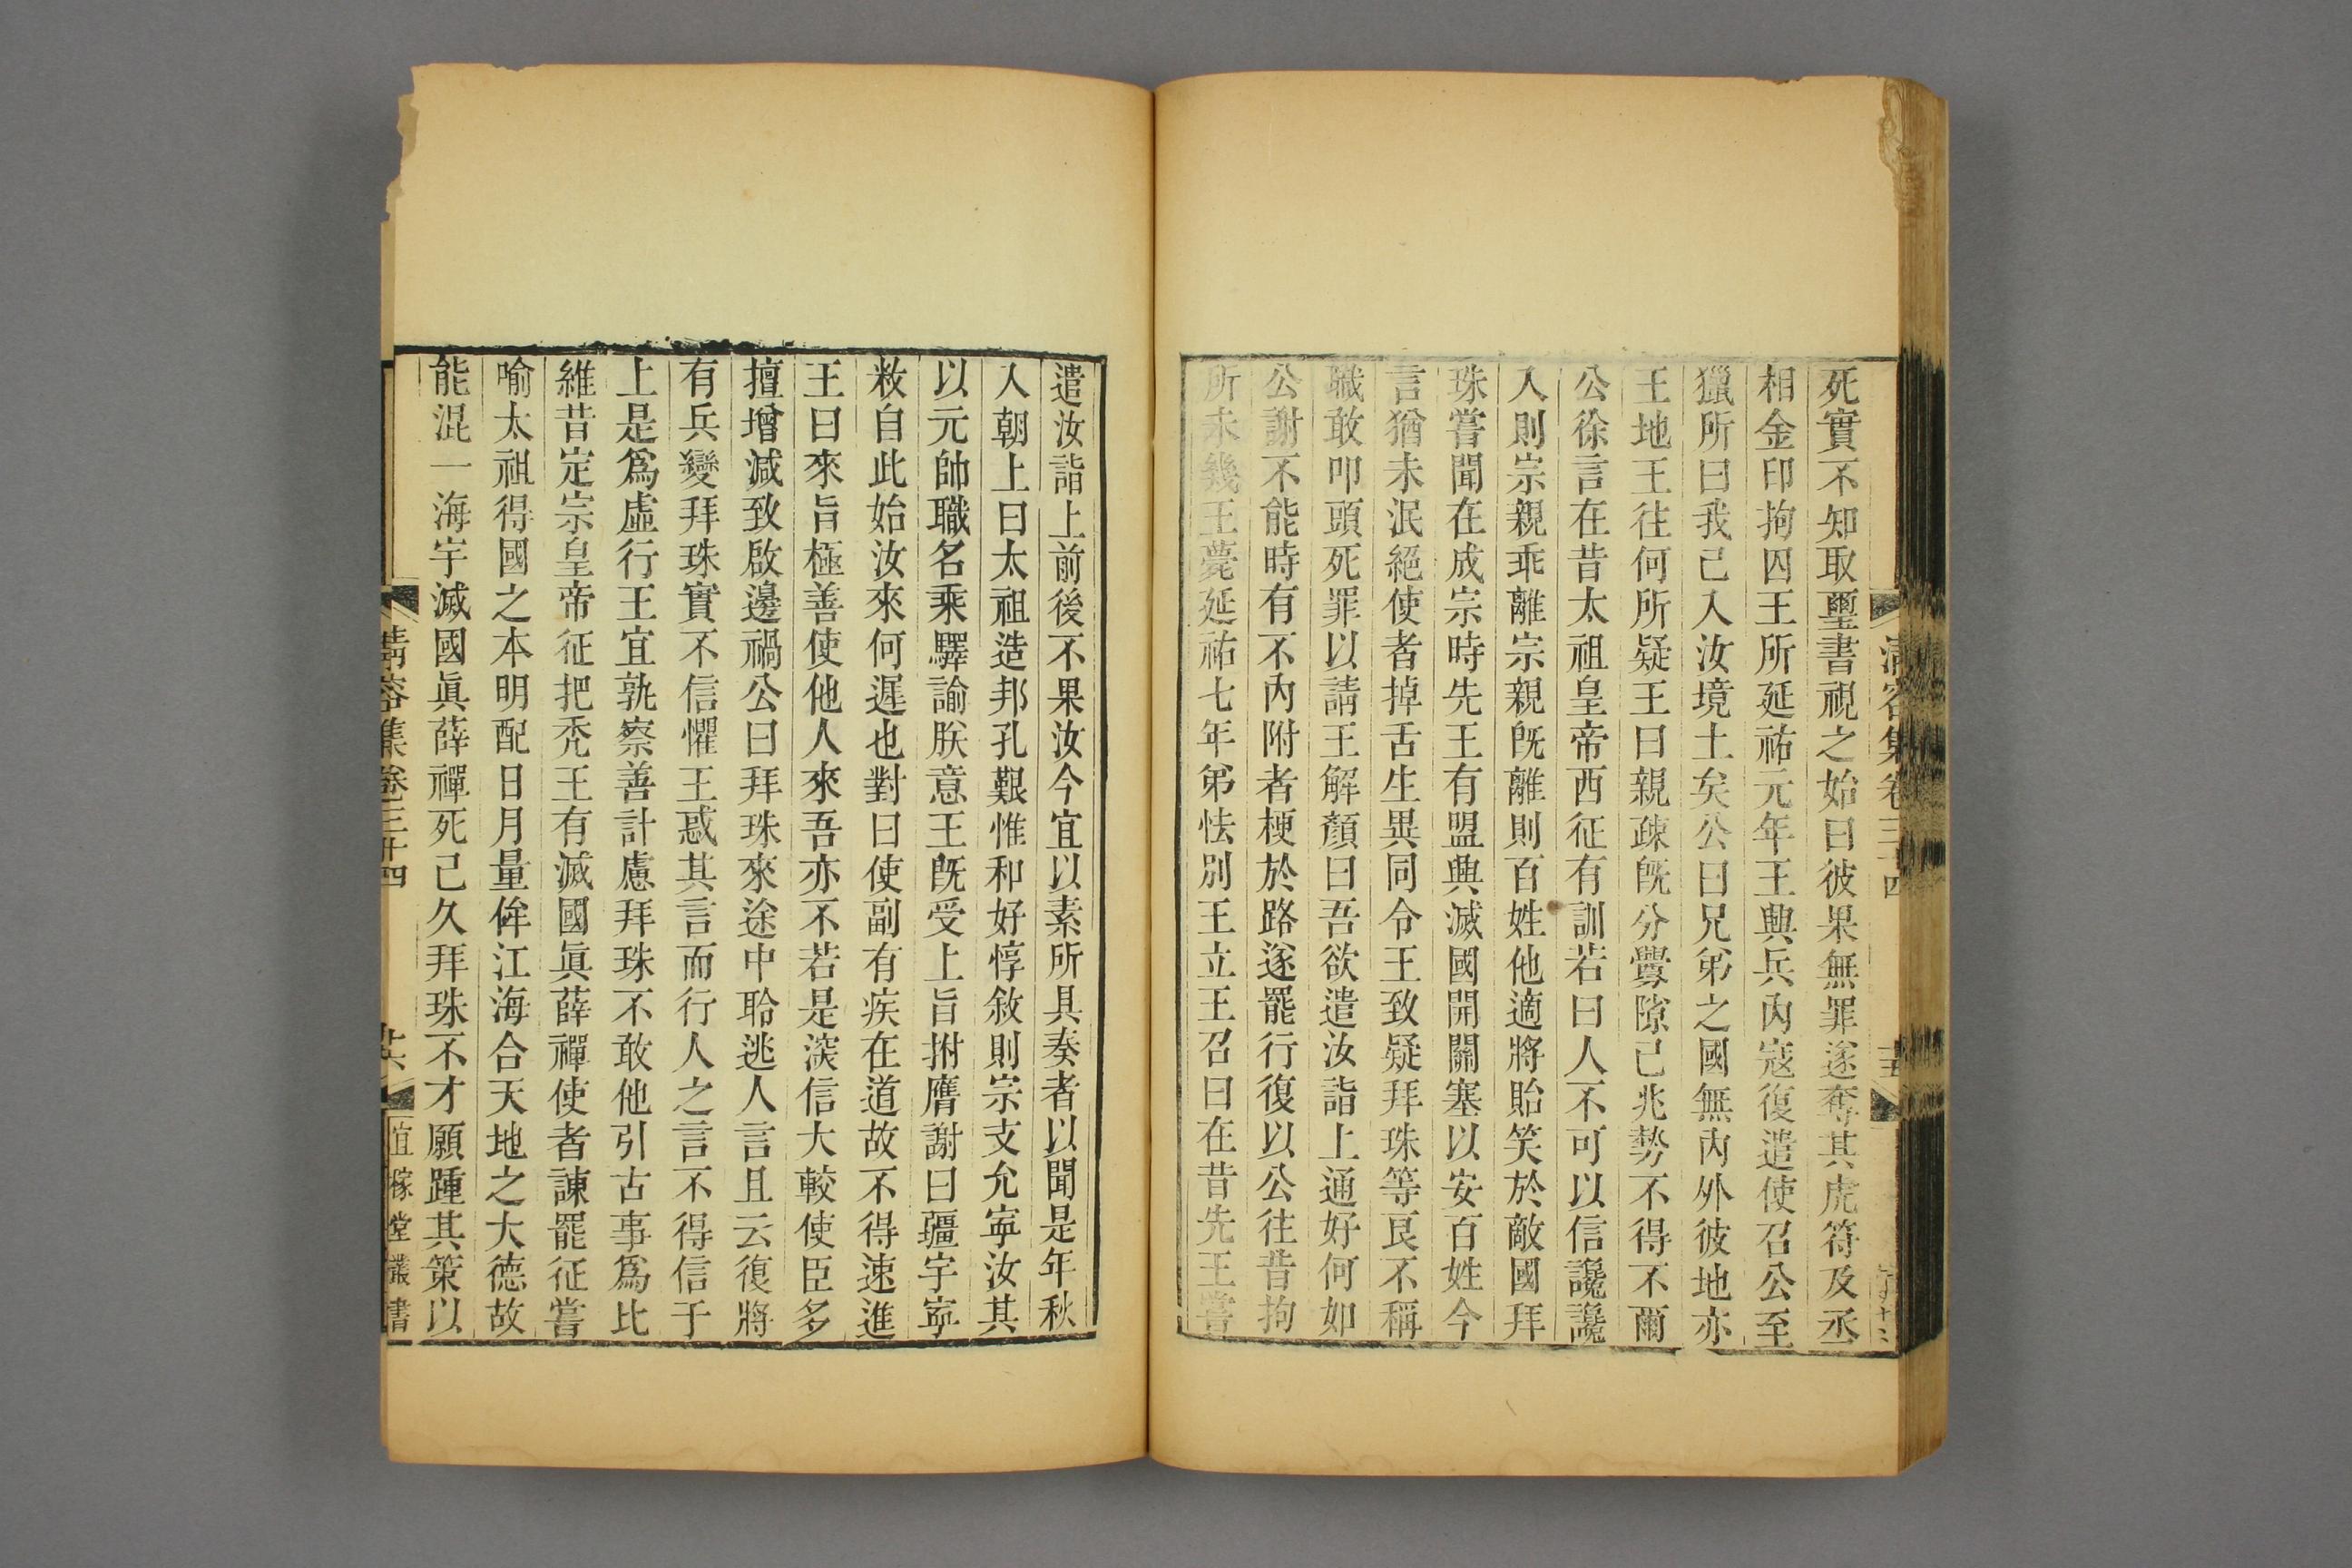 清容集卷三十四
十五
死實不知取璽書視之始曰彼果無罪遂奪其虎符及丞
相金印拘囚王所延祐元年王興兵內寇復遣使召公至
獵所曰我已入汝境土矣公曰兄弟之國無內外彼地亦
王地王往何所疑王曰親疎旣分釁隙已兆勢不得不爾
公徐言在昔太祖皇帝西征有訓若曰人不可以信讒讒
入則宗親乖離宗親旣離則百姓他適將貽笑於敵國拜
珠嘗聞在成宗時先王有盟與滅國開關塞以安百姓今
言猶未泯絕使者掉舌生異同令王致疑拜珠等艮不稱
職敢叩頭死罪以請王解顏曰吾欲遣汝詣上通好何如
公謝不能時有不內附者梗於路遂罷行復以公往昔拘
所未幾王薨延祐七年弟怯別王立王召曰在昔先王嘗
遣汝詣上前後不果汝今宜以素所具奏者以聞是年秋
入朝上曰太祖造邦孔艱惟和好惇敘則宗支允寧汝其
以元帥職名乘驛諭朕意王旣受上旨拊膺謝曰疆宇寧
敉自此始汝來何遲也對曰使副有疾在道故不得速進
王曰來旨極善使他人來吾亦不若是深信大較使臣多
擅增減致啟邊禍公曰拜珠來途中聆逃人言且云復將
有兵變拜珠實不信懼王惑其言而行人之言不得信于
上是爲虛行王宜孰察善計慮拜珠不敢他引古事爲比
維昔定宗皇帝征把禿王有滅國眞薛禪使者諫罷征嘗
喻太祖得國之本明配日月量侔江海合天地之大德故
能混一海宇滅國眞薛禪死已久拜珠不才願踵其策以
清容集卷三十四
十六
宜稼堂叢書